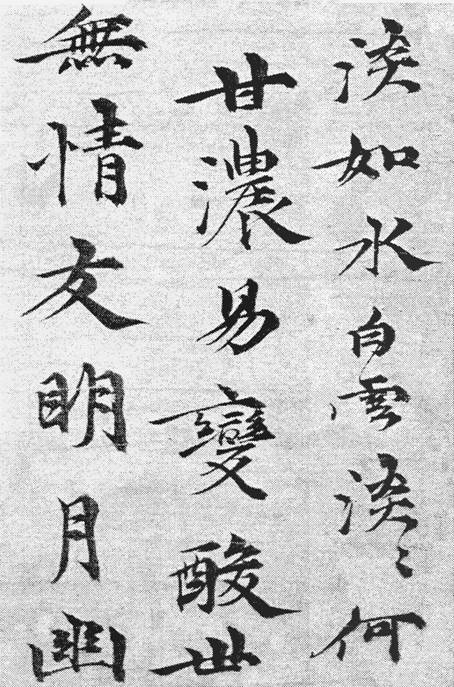 淡如水白雲淡〻何
甘濃易變酸世
無情友明月幽